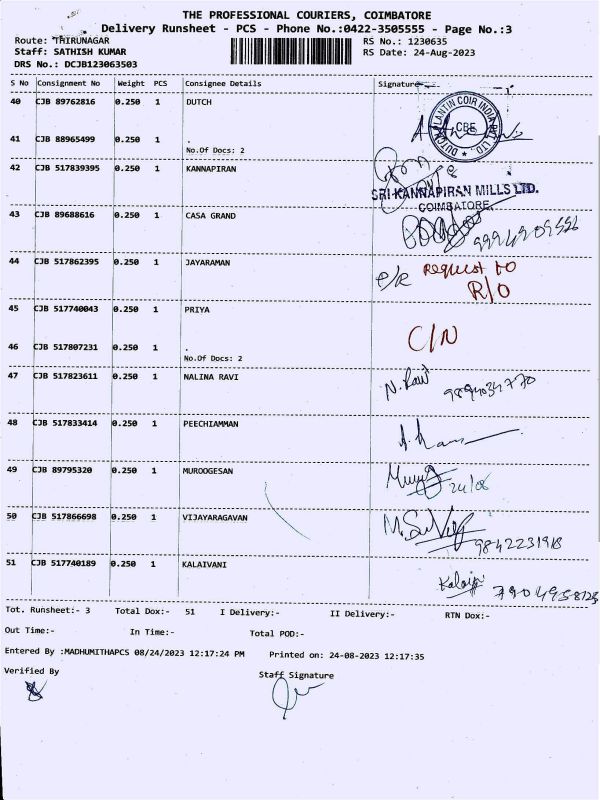 THE PROFESSIONAL COURIERS, COIMBATORE
Delivery Runsheet - PCS - Phone No.:0422-3505555 - Page No.:3
Route: THIRUNAGAR
RS No.: 1230635
Staff: SATHISH KUMAR
RS Date: 24-Aug-2023
DRS No.: DCJB123063503
S No Consignment No Weight PCS Consignee Details Signature
40 CJB 89762816 0.250 1 DUTCH
DUTCH LANTIN COIR INDIA PVT LTD
CBE
41 CJB 88965499 0.250 1 .
No.Of Docs: 2
42 CJB 517839395 0.250 1 KANNAPIRAN
SRI KANNAPIRAN MILLS LTD.
COIMBATORE
43 CJB 89688616 0.250 1 CASA GRAND
44 CJB 517862395 0.250 1 JAYARAMAN
Request to
R/O
45 CJB 517740043 0.250 1 PRIYA
C/N
46 CJB 517807231 0.250 1 .
No.Of Docs: 2
47 CJB 517823611 0.250 1 NALINA RAVI
N. Ravi
48 CJB 517833414 0.250 1 PEECHIAMMAN
49 CJB 89795320 0.250 1 MUROOGESAN
24/08
50 CJB 517866698 0.250 1 VIJAYARAGAVAN
9842231918
51 CJB 517740189 0.250 1 KALAIVANI
Tot. Runsheet:- 3 Total Dox:- 51 I Delivery:- II Delivery:- RTN Dox:-
Out Time:- In Time:- Total POD:-
Entered By :MADHUMITHAPCS 08/24/2023 12:17:24 PM Printed on: 24-08-2023 12:17:35
Verified By Staff Signature